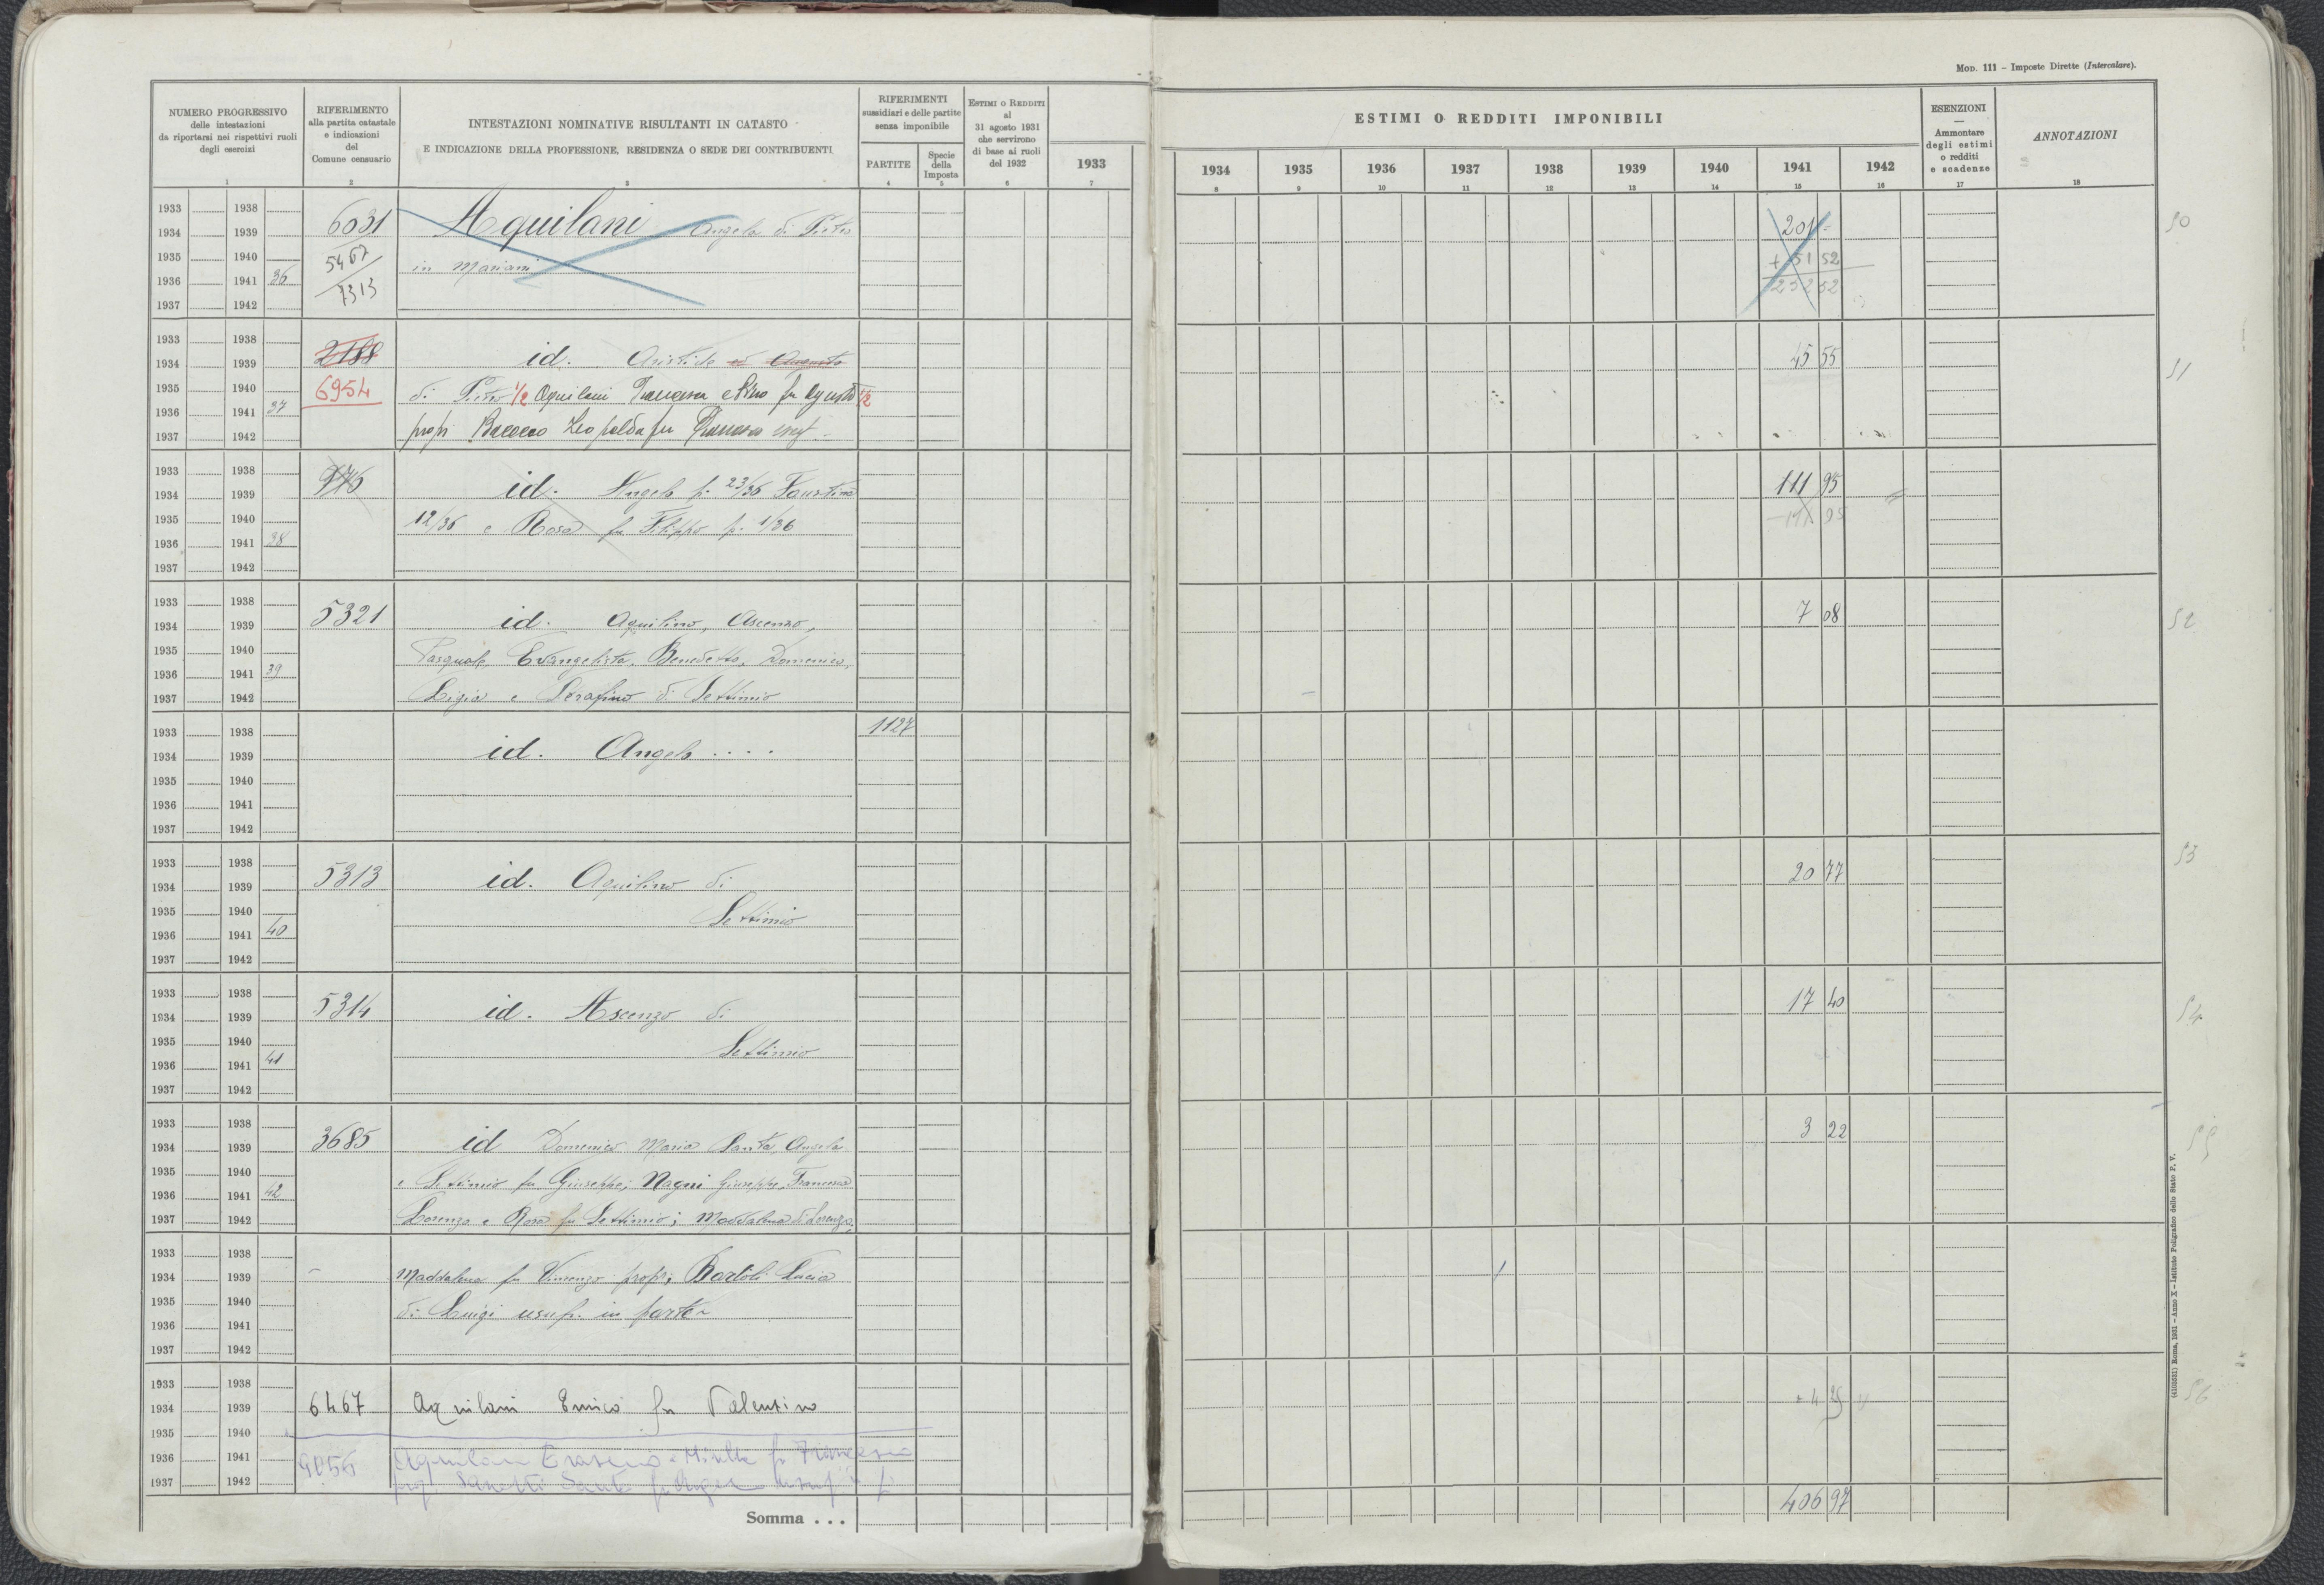 Mod. 111 – Imposte Dirette (Intercalare).
NUMERO PROGRESSIVO
delle intestazioni
da riportarsi nei rispettivi ruoli
degli esercizi
1
RIFERIMENTO
alla partita catastale
e indicazioni
del
Comune censuario
2
INTESTAZIONI NOMINATIVE RISULTANTI IN CATASTO
E INDICAZIONE DELLA PROFESSIONE, RESIDENZA O SEDE DEI CONTRIBUENTI
3
RIFERIMENTI
sussidiari e delle partite
senza imponibile
PARTITE
4
Specie
della
Imposta
5
ESTIMI O REDDITI
al
31 agosto 1931
che servirono
di base ai ruoli
del 1932
6
1933
7
ESTIMI O REDDITI IMPONIBILI
1934 1935 1936 1937 1938 1939 1940 1941 1942
8 9 10 11 12 13 14 15 16
ESENZIONI
—
Ammontare
degli estimi
o redditi
e scadenze
17
ANNOTAZIONI
18
1933 1938
1934 1939 6031 Aquilani Angela di Pietro 201 = 50
1935 1940 5467 in Mariani + 51 52
1936 1941 36 7313 252 52
1937 1942
1933 1938
1934 1939 2188 id. Aristide ed Augusto 45 55 51
1935 1940 6954 di Pietro 1/2 Aquilani Francesca e fu Augusto 1/2
1936 1941 37
1937 1942 propr Leopolda fu Francesco usuf
1933 1938
1934 1939 976 id. Angelo p. 23/36 Faustina 111 95
1935 1940 12/36 e Rosa fu Filippo p. 1/36 – 111 95
1936 1941 38
1937 1942
1933 1938
1934 1939 5321 id. Aquilino, Ascenzo, 7 08 52
1935 1940 Pasquale, Evangelista, Benedetto, Domenico,
1936 1941 39
1937 1942 Ligia e Serafino di Settimio
1933 1938 1127
1934 1939 id. Angelo . . . .
1935 1940
1936 1941
1937 1942
1933 1938
1934 1939 5313 id. Aquilino di 20 77 53
1935 1940 Settimio
1936 1941 40
1937 1942
1933 1938
1934 1939 5314 id. Ascenzo di 17 40 54
1935 1940
1936 1941 41 Settimio
1937 1942
1933 1938
1934 1939 3685 id Domenico Maria Santa, Angela 3 22 55
1935 1940
1936 1941 42 e Settimio fu Giuseppe; Nagni Giuseppe, Francesca
1937 1942 Lorenzo e Rosa fu Settimio; Maddalena di Lorenzo,
1933 1938
1934 1939 – Maddalena fu Vincenzo propr; Bartoli Lucia
1935 1940 di Luigi usufr. in parte
1936 1941
1937 1942
1933 1938
1934 1939 6467 Aquilani Enrico fu Valentino + 4 25 56
1935 1940
1936 1941 Aquilani Erasmo e fu Francesco
1937 1942 Sante
Somma . . . 406 97
(4103531) Roma, 1931 – Anno X – Istituto Poligrafico dello Stato P. V.